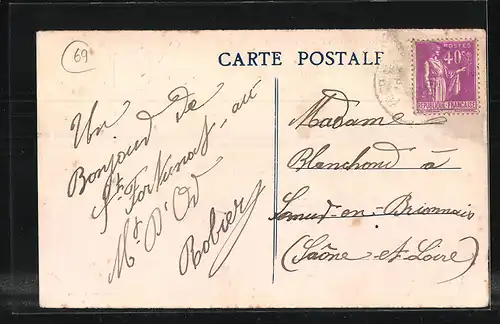 69
CARTE POSTALE
POSTES
40c
REPUBLIQUE FRANÇAISE
Un
Bonjour de
St Fortunat au
Mt D'Or
Robier
Madame
Blanchond à
Semur-en-Brionnais
(Saône et Loire)